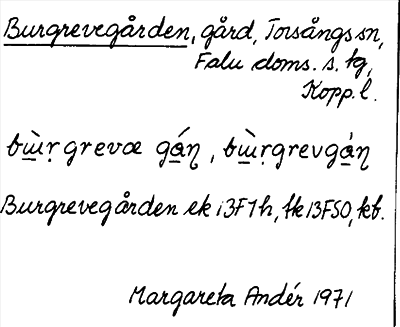 Burgrevegården, gård, Torsångs sn,
Falu doms. s. tg,
Kopp. l.
bɯ̀r̥ grevæ gán̥, bɯ̀r̥grevgán̥
Burgrevegården ek 13F7h, fk 13F50, kb.
Margareta Andér 1971